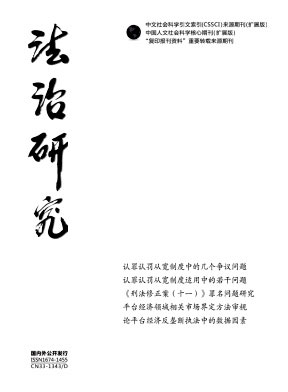 中文社会科学引文索引(CSSCI)来源期刊(扩展版)
中国人文社会科学核心期刊(扩展版)
“复印报刊资料”重要转载来源期刊
法治研究
认罪认罚从宽制度中的几个争议问题
认罪认罚从宽制度适用中的若干问题
《刑法修正案（十一）》罪名问题研究
平台经济领域相关市场界定方法审视
论平台经济反垄断执法中的数据因素
国内外公开发行
ISSN1674-1455
CN33-1343/D